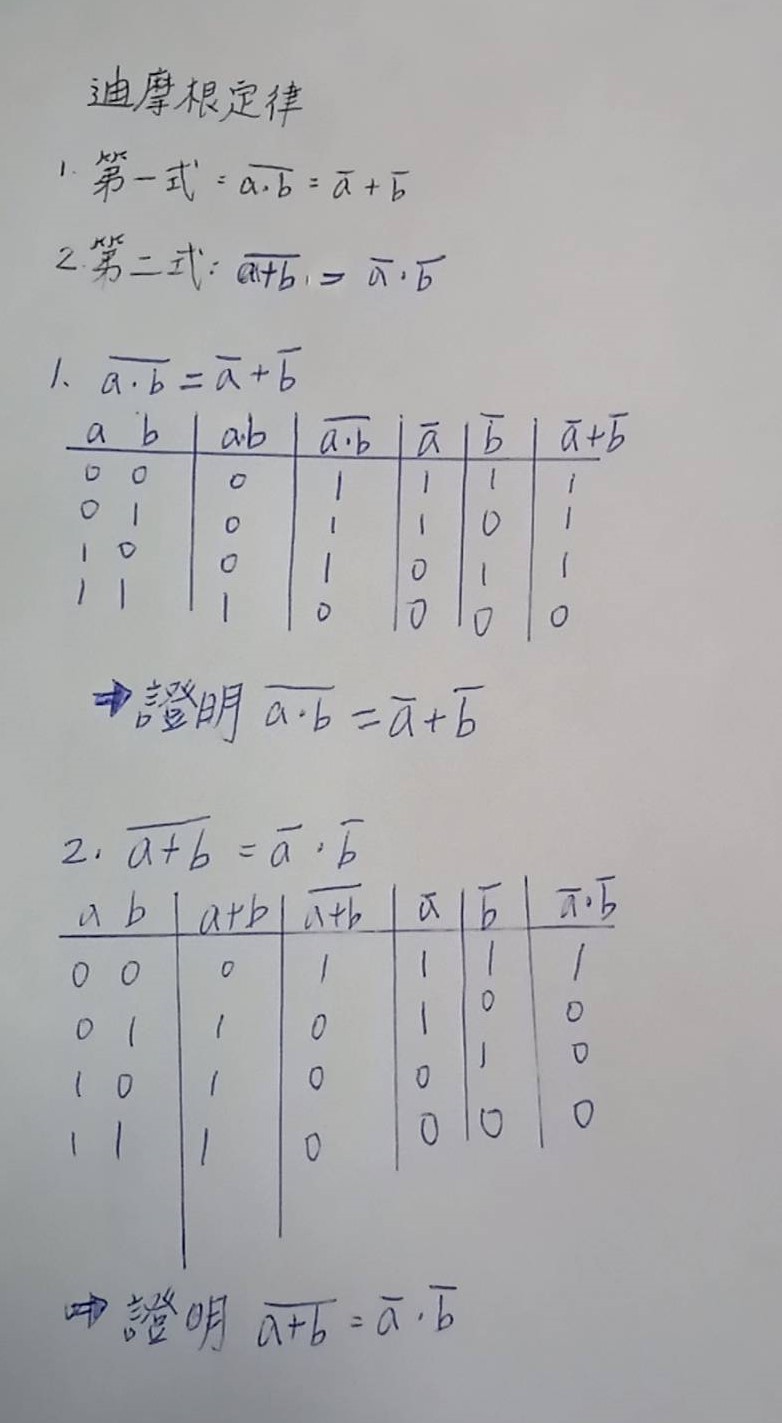 迪摩根定律
1. 第一式: a̅·̅b̅ = a̅ + b̅
2. 第二式: a̅+̅b̅ = a̅ · b̅
1. a̅·̅b̅ = a̅ + b̅
a b | a·b | a̅·̅b̅ | a̅ | b̅ | a̅+b̅
0 0 | 0 | 1 | 1 | 1 | 1
0 1 | 0 | 1 | 1 | 0 | 1
1 0 | 0 | 1 | 0 | 1 | 1
1 1 | 1 | 0 | 0 | 0 | 0
⇒ 證明 a̅·̅b̅ = a̅ + b̅
2. a̅+̅b̅ = a̅ · b̅
a b | a+b | a̅+̅b̅ | a̅ | b̅ | a̅·b̅
0 0 | 0 | 1 | 1 | 1 | 1
0 1 | 1 | 0 | 1 | 0 | 0
1 0 | 1 | 0 | 0 | 1 | 0
1 1 | 1 | 0 | 0 | 0 | 0
⇒ 證明 a̅+̅b̅ = a̅ · b̅